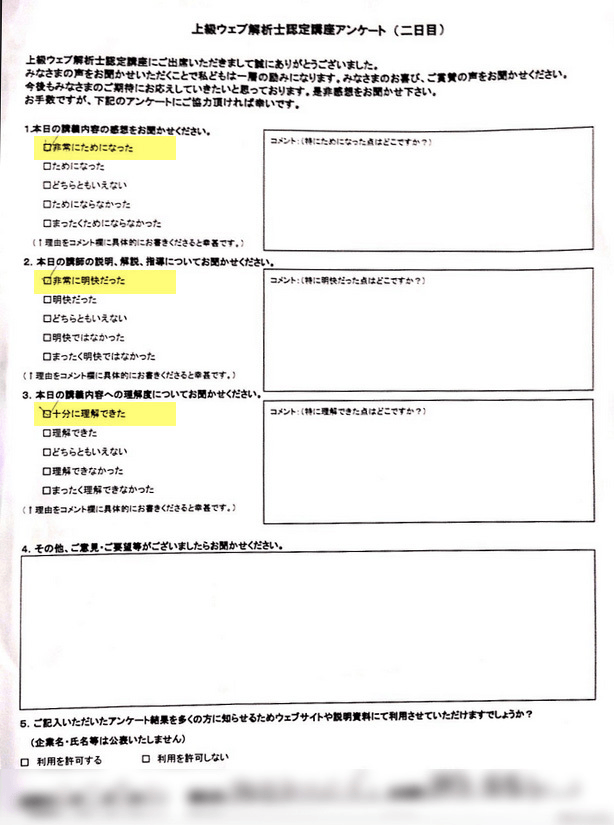 上級ウェブ解析士認定講座アンケート（二日目）
上級ウェブ解析士認定講座にご出席いただきまして誠にありがとうございました。
みなさまの声をお聞かせいただくことで私どもは一層の励みになります。みなさまのお喜び、ご賞賛の声をお聞かせください。
今後もみなさまのご期待にお応えしていきたいと思っております。是非感想をお聞かせ下さい。
お手数ですが、下記のアンケートにご協力頂ければ幸いです。
1.本日の講義内容の感想をお聞かせください。
コメント：(特にためになった点はどこですか？)
☑非常にためになった
□ためになった
□どちらともいえない
□ためにならなかった
□まったくためにならなかった
(↑理由をコメント欄に具体的にお書きくださると幸甚です。)
2. 本日の講師の説明、解説、指導についてお聞かせください。
コメント：(特に明快だった点はどこですか？)
☑非常に明快だった
□明快だった
□どちらともいえない
□明快ではなかった
□まったく明快ではなかった
(↑理由をコメント欄に具体的にお書きくださると幸甚です。)
3. 本日の講義内容への理解度についてお聞かせください。
コメント：(特に理解できた点はどこですか？)
☑十分に理解できた
□理解できた
□どちらともいえない
□理解できなかった
□まったく理解できなかった
(↑理由をコメント欄に具体的にお書きくださると幸甚です。)
4. その他、ご意見・ご要望等がございましたらお聞かせください。
5. ご記入いただいたアンケート結果を多くの方に知らせるためウェブサイトや説明資料にて利用させていただけますでしょうか？
(企業名・氏名等は公表いたしません)
□ 利用を許可する　□ 利用を許可しない